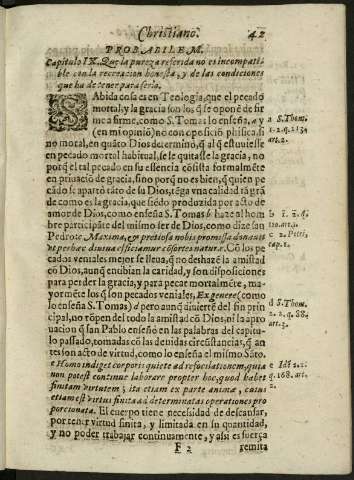 Christiano. 42
PROBABILEM.
Capitulo IX. Que la pureza referida no es incompati
ble con la recreacion honesta, y de las condiciones
que ha de tener para serlo.
SAbida cosa es en Teologia, que el pecado
mortal, y la gracia son los q̃ se oponē de fir
me a firme, como S. Tomas lo enseña, a y
(en mi opiniõ) no con oposiciõ phisica, si
no moral, en quãto Dios determinò, q̃ al q̃ estuviesse
en pecado mortal habitual, se le quitasse la gracia, no
porq̃ el tal pecado en su essencia cõsista formalmēte
en privaciõ de gracia, sino porq̃ no es biē, q̃ quien pe
cãdo se apartò tãto de su Dios, tēga vna calidad tã grã
de como es la gracia, que siēdo produzida por acto de
amor de Dios, como enseña S. Tomas b haze al hom
bre participãte del mismo ser de Dios, como dize san
Pedro: c Maxima, & pretiosa nobis promissa donauit,
vt per hæc diuinæ efficiamur cõsortes naturæ. Cõ los pe
cados veniales mejor se lleua, q̃ no deshazē la amistad
cõ Dios, aunq̃ entibian la caridad, y son disposiciones
para perder la gracia, y para pecar mortalmēte, ma-
yormēte los q̃ son pecados veniales, Ex genere (como
lo enseña S. Tomas) d pero aunq̃ diuiertē del fin prin
cipal, no rõpen del todo la amistad cõ Dios, ni la apro
uacion q̃ san Pablo enseñò en las palabras del capitu-
lo passado, tomadas cõ las deuidas circunstãcias, q̃ an
tes son acto de virtud, como lo enseña el mismo Sãto.
e Homo indiget corporis quiete ad refocilationem, quia
non potest continue laborare propter hoc, quod habet
finitam virtutem; ita etiam ex parte animæ, cuius
etiam est virtus finita ad determinatas operationes pro
porcionata. El cuerpo tiene necesidad de descansar,
por tener virtud finita, y limitada en su quantidad,
y no poder trabajar continuamente, y assi es fuerça
F 2 remita
a S. Thom.
1. 2. q. 113.
art. 2.
b 1. 2. q.
110. art. 3.
c 2. Petri,
cap. 1.
d S. Thom.
2. 2. q. 88.
art. 3.
e Idē 2. 2.
q. 168. art.
2.